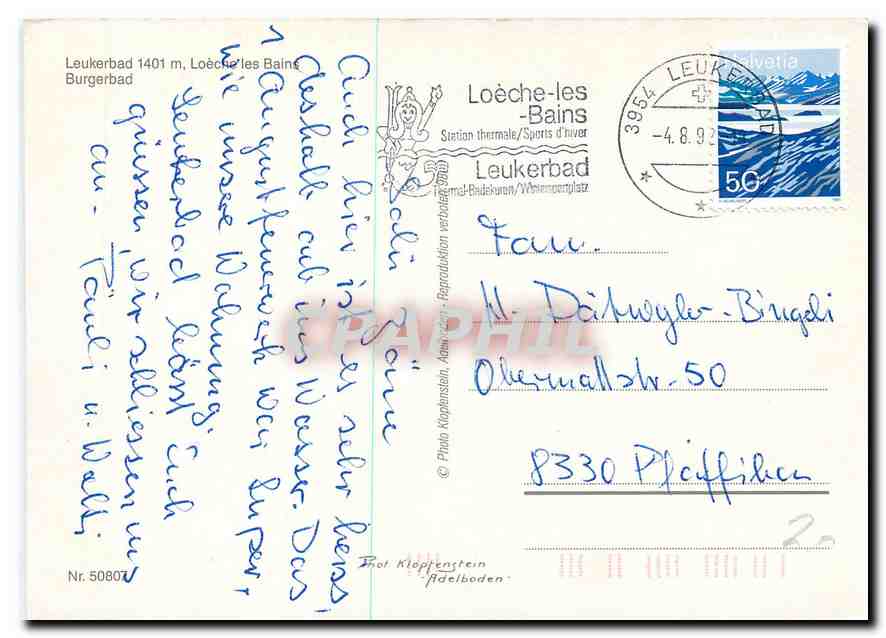 Leukerbad 1401 m, Loèche les Bains
Burgerbad
Salü
Auch hier ist es sehr heiss,
deshalb ab ins Wasser. Das
1. Augustfeuerwerk war super,
wie unsere Wohnung.
Leukerbad lässt Euch
grüssen, wir schliessen uns
an. u. Walti
Nr. 50807
© Photo Klopfenstein, Adelboden - Reproduktion verboten
Loèche-les
-Bains
Station thermale/Sports d'hiver
Leukerbad
Thermal-Badekuren/Wintersportplatz
3954 LEUKERBAD
-4.8.92
Helvetia
50
Fam.
H. Dätwyler-Bingeli
Obermattstr. 50
8330 Pfäffikon
2.-
Phot Klopfenstein
Adelboden
CPAPHIL